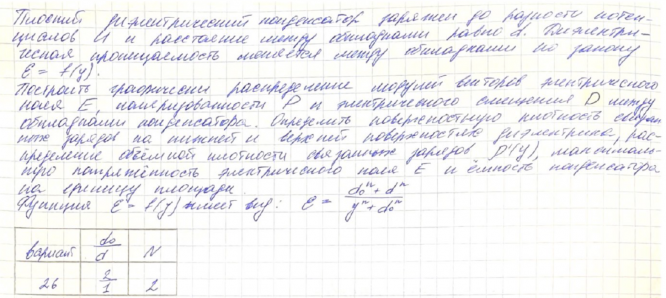 Плоский диэлектрический конденсатор заряжен до разности потен-
циалов U и расстояние между обкладками равно d. Диэлектри-
ческая проницаемость меняется между обкладками по закону
ε = f(y).
Построить графически распределение модулей векторов электрического
поля E, поляризованности P и электрического смещения D между
обкладками конденсатора. Определить поверхностную плотность связан-
ных зарядов на нижней и верхней поверхностях диэлектрика, рас-
пределение объёмной плотности связанных зарядов ρ'(y), максималь-
ную напряжённость электрического поля E и ёмкость конденсатора
на единицу площади.
Функция ε = f(y) имеет вид: ε = (d₀ⁿ + dⁿ)/(yⁿ + d₀ⁿ)
вариант d₀/d N
26 2/1 2